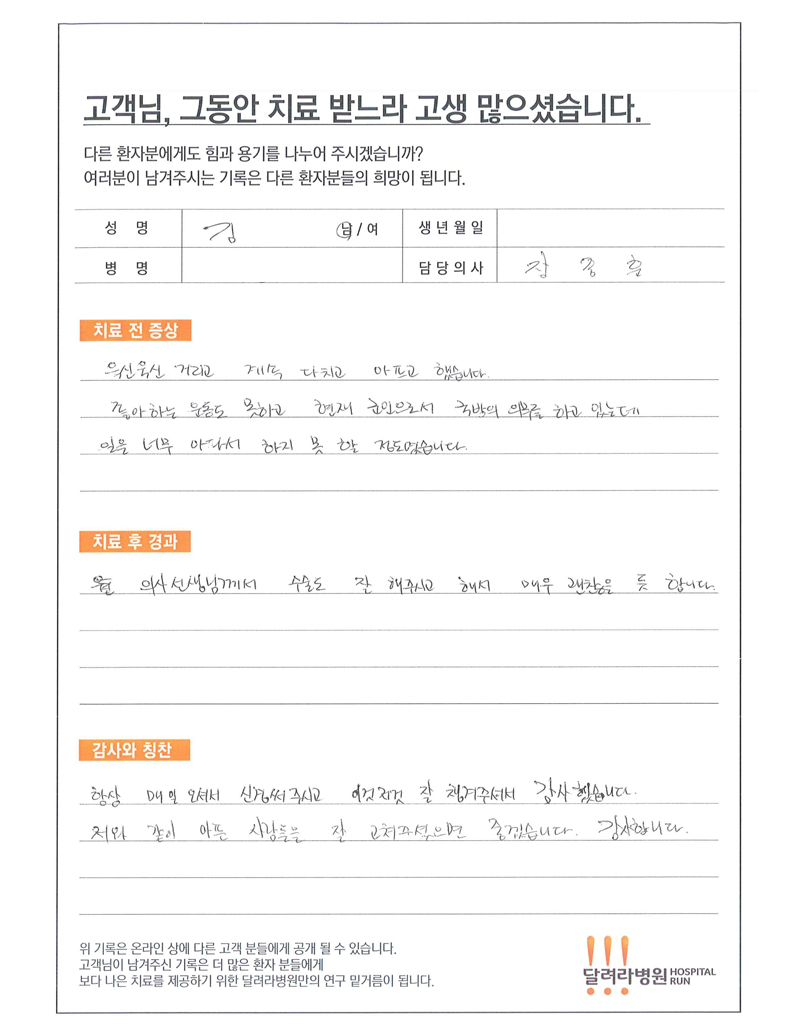 고객님, 그동안 치료 받느라 고생 많으셨습니다.
다른 환자분에게도 힘과 용기를 나누어 주시겠습니까?
여러분이 남겨주시는 기록은 다른 환자분들의 희망이 됩니다.
성 명 김 남 / 여 생년월일
병 명 담당의사 장종훈
치료 전 증상
욱신욱신 거리고 계속 다치고 아프고 했습니다.
좋아하는 운동도 못하고 현재 군인으로서 국방의 의무를 하고 있는데
일을 너무 아파서 하지 못 할 정도였습니다.
치료 후 경과
의사선생님께서 수술도 잘 해주시고 해서 매우 괜찮은 듯 합니다.
감사와 칭찬
항상 매일 오셔서 신경써주시고 이것저것 잘 챙겨주셔서 감사했습니다.
저와 같이 아픈 사람들을 잘 고쳐주셨으면 좋겠습니다. 감사합니다.
위 기록은 온라인 상에 다른 고객 분들에게 공개 될 수 있습니다.
고객님이 남겨주신 기록은 더 많은 환자 분들에게
보다 나은 치료를 제공하기 위한 달려라병원만의 연구 밑거름이 됩니다.
달려라병원 HOSPITAL RUN